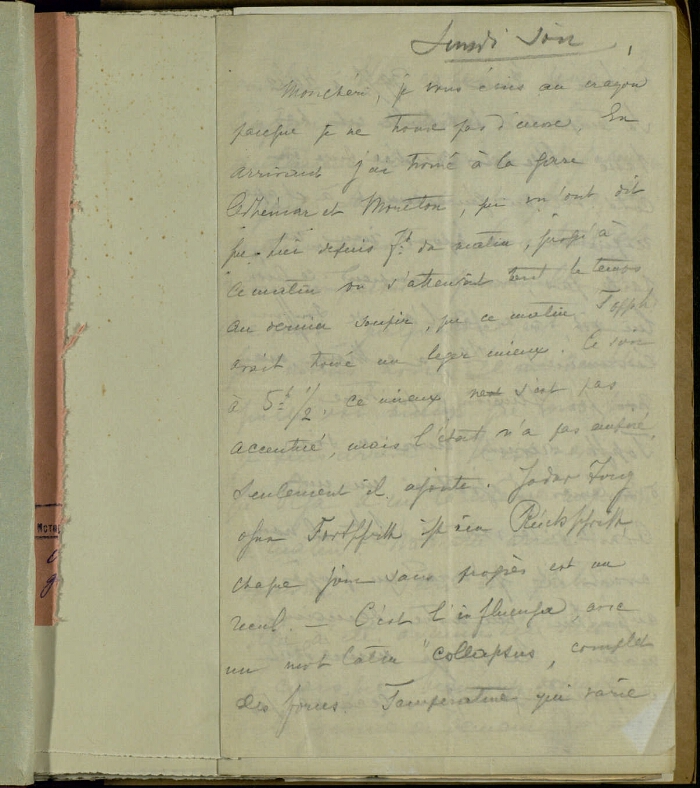 Lundi Soir
1
Mon chéri, je vous écris au crayon
parceque je ne trouve pas d'encre. En
arrivant j'ai trouvé à la gare
et Moutton, qui m'ont dit
que depuis 7h du matin, jusqu'à
ce matin on s'attendait tout le temps
au dernier soupir, que ce matin
avait trouvé un léger mieux. Ce soir
à 5h 1/2, ce mieux ne s'est pas
accentué, mais l'état n'a pas empiré,
Seulement il ajoute. Jeder Tag
ohne Fortschritt ist ein Rückschritt
chaque jour sans progrès est un
recul. — C'est l'influenza, avec
un mot latin collapsus, complet
des forces. Température qui varie